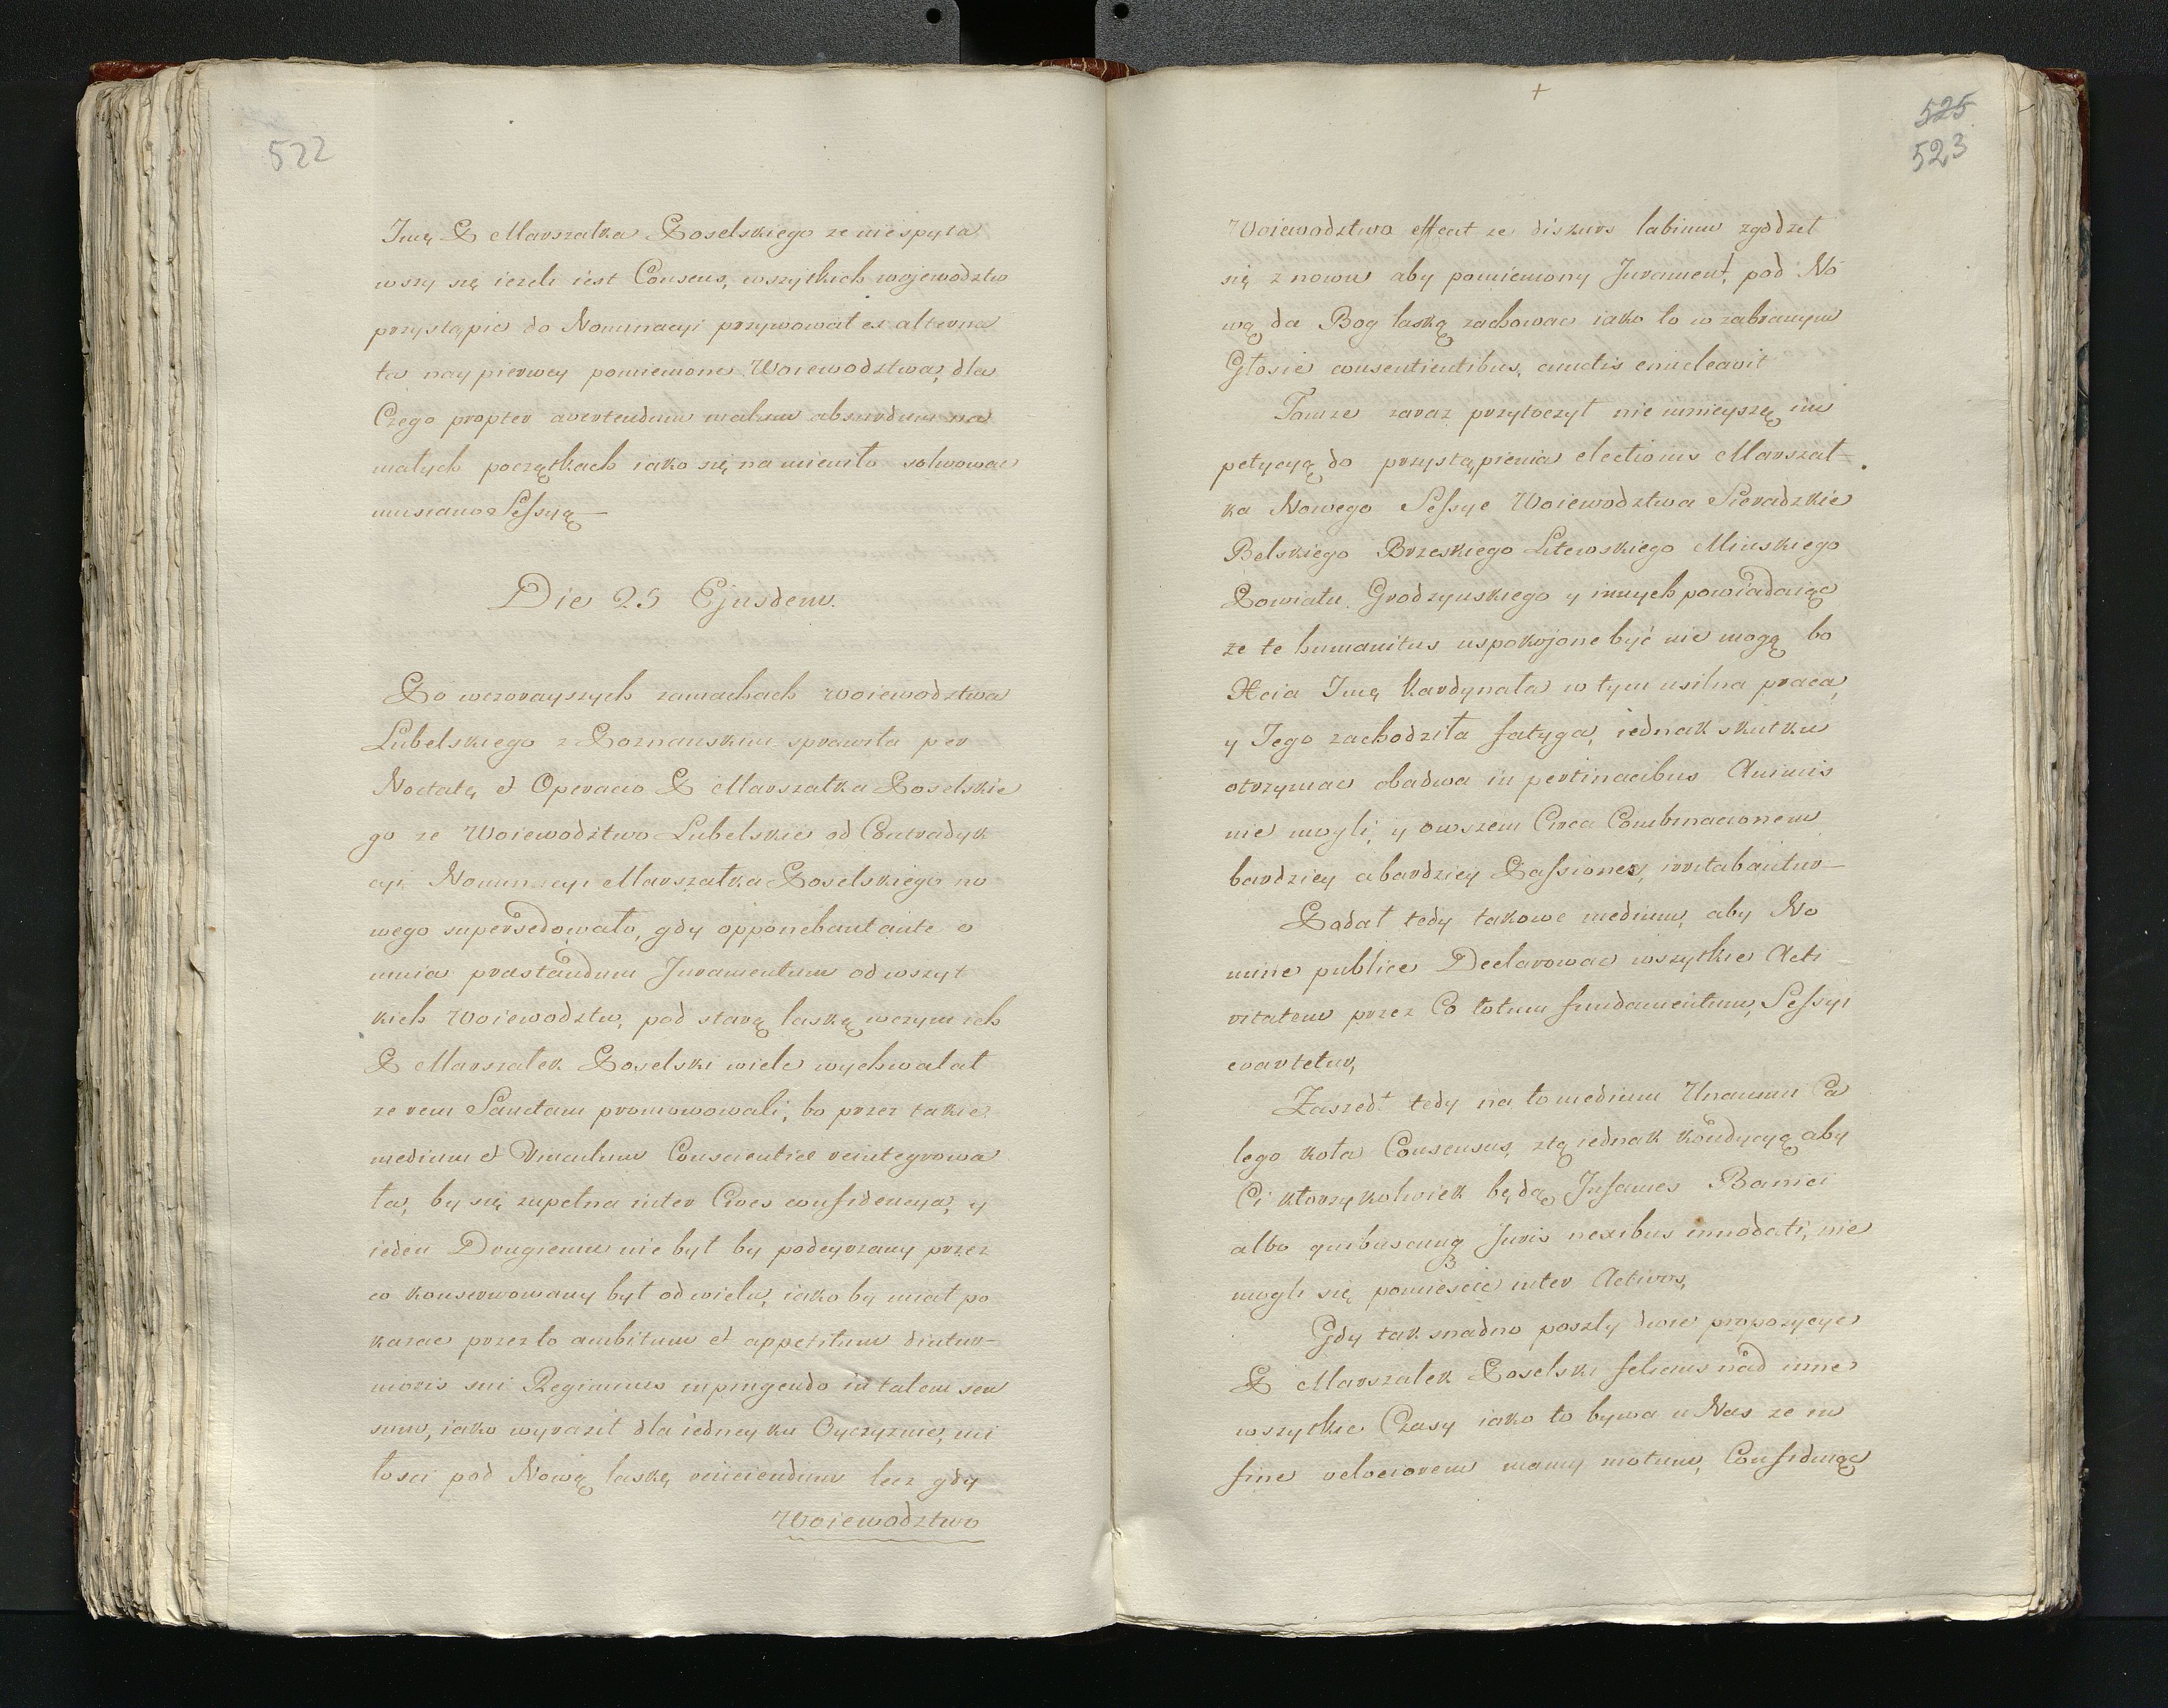 522
Imę P. Marszałka Poselskiego ze nie spyta
wszy się iezeli iest Consens, wszytkich wojewodztw
przystąpic do Nominacyi przywował ex alterna
ta naypierwey pomienione Woiewodztwa, dla
Czego propter avertendum malum absurdum na
małych początkach iako się na mieniło solwowac
musiano Sessyą
Die 25 Ejusdem.
Po wczorayszych zamachach woiewodztwa
Lubelskiego z Poznanskim sprawiła per
Noctatę et Operacio P. Marszałka Poselskie
go ze Woiewodztwo Lubelskie od Contradyk
cyi Nominacyi Marszałka Poselskiego no
wego supersedowało, gdy opponebant ante o
mnia præstandum Juramentum od wszyt
kich Woiewodztw, pod starą laską w czym ich
P. Marszałek Poselski wiele wychwalał
ze rem Sanctam promowowali, bo przez takie
medium et Vinculum Conscientiæ reintegrowa
ła, by się zupełna inter Cives confidencya, y
ieden Drugiemu nie był by podeyrzany przez
co konserwowany był od wielu, iako by miał po
kazac przez to ambitum et appetitum diutur-
nioris sui Regiminis inpingendo in talem sen
sum, iako wyraził dla iedney ku Oyczyznie, mi
łosci pod Nową laskę reiiciendum lecz gdy
Woiewodztwo
525
523
Woiewodztwo effecit ze diskurs labium zgodzeł
się znowu aby pomieniony Jurament, pod No
wą da Bog laską zachowac iako to w zabranym
Głosie consentientibus, cunctis enucleavit
Tamze zaraz przytoczył nie mnieyszą im
petycyą do przystąpienia electionis Marszał-
ka Nowego Sessye Woiewodztwa Sieradzkie
Belskiego Brzeskiego Litewskiego Minskiego
Powiatu Grodzynskiego y innych powiadaiąc
ze te humanitus uspokojone być nie mogą bo
Xcia Imę Kardynała w tym usilna praca,
y Jego zachodziła fatyga, iednak skutku
otrzymac obadwa in pertinacibus Animis
nie mogli, y owszem Circa Combinacionem
bardziey a bardziey Passiones, irritabantur-
Podał tedy takowe medium, aby No
mine publice Declarowac wszytkie Acti
vitatem przez Co totum fundamentum, Sessyi
evartetur,
Zaszedł tedy na to medium Unanimi Ca
łego koła Consensus, z tą iednak kondycyą aby
Ci ktorzykolwiek będą Infames Banici
albo quibuscunq Juris nexibus innodati, nie
mogli się pomiescic inter Activos,
Gdy tak snadno poszły dwie propozycye
P. Marszałek Poselski felicius nad inne
wszytkie Czasy iako to bywa u Nas ze in
fine velociorem mamy motum, Confidując